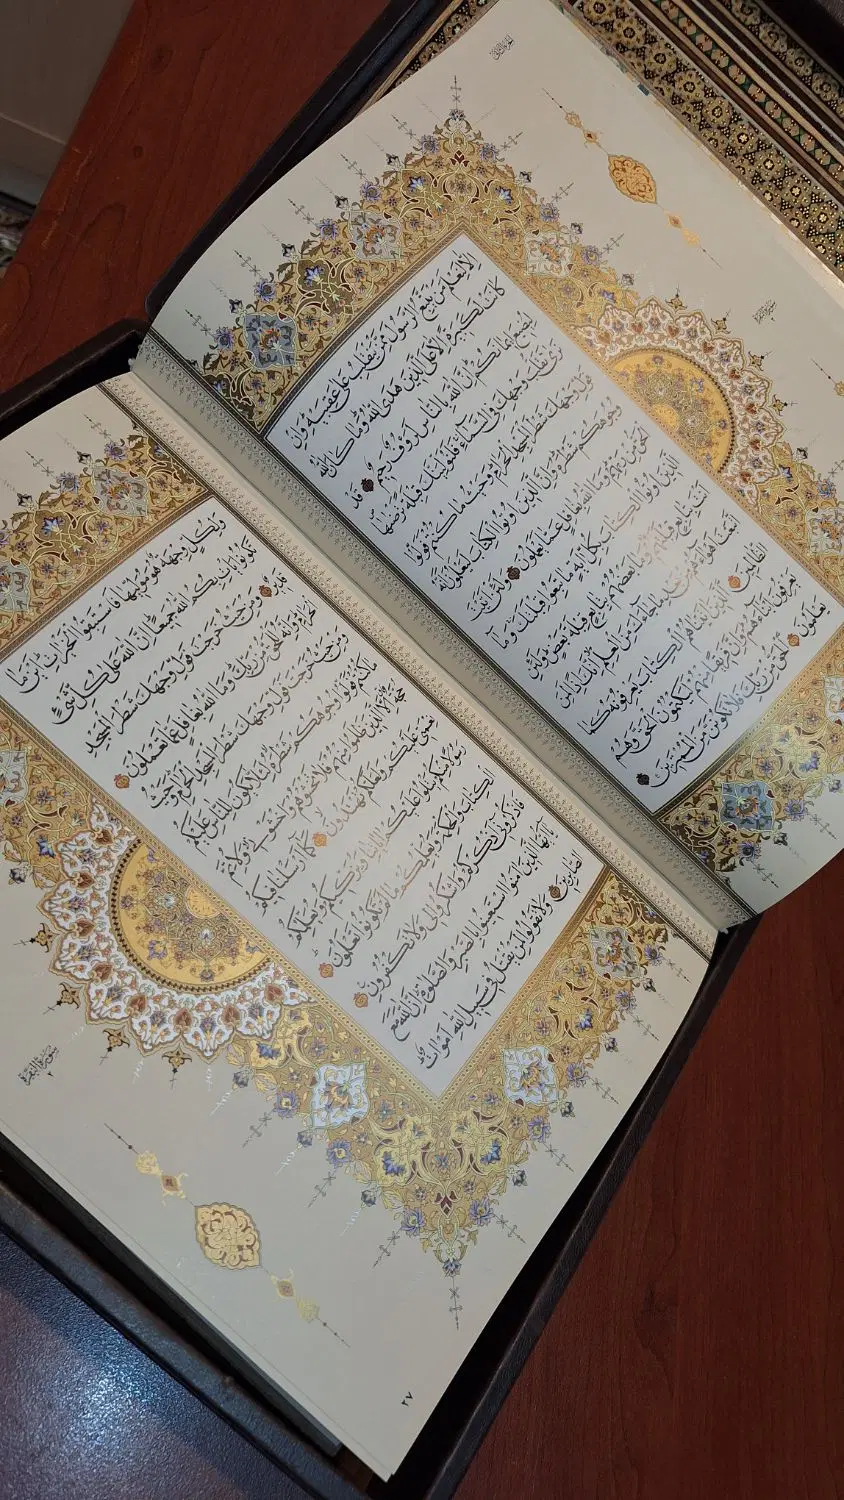 الجزء الثاني
سورة البقرة
٢
إِلَّا لِنَعْلَمَ مَنْ يَتَّبِعُ الرَّسُولَ مِمَّنْ يَنْقَلِبُ عَلَىٰ عَقِبَيْهِ وَإِنْ
كَانَتْ لَكَبِيرَةً إِلَّا عَلَى الَّذِينَ هَدَى اللَّهُ وَمَا كَانَ اللَّهُ
لِيُضِيعَ إِيمَانَكُمْ إِنَّ اللَّهَ بِالنَّاسِ لَرَءُوفٌ رَحِيمٌ قَدْ
نَرَىٰ تَقَلُّبَ وَجْهِكَ فِي السَّمَاءِ فَلَنُوَلِّيَنَّكَ قِبْلَةً تَرْضَاهَا
فَوَلِّ وَجْهَكَ شَطْرَ الْمَسْجِدِ الْحَرَامِ وَحَيْثُ مَا كُنْتُمْ فَوَلُّوا
وُجُوهَكُمْ شَطْرَهُ وَإِنَّ الَّذِينَ أُوتُوا الْكِتَابَ لَيَعْلَمُونَ أَنَّهُ
الْحَقُّ مِنْ رَبِّهِمْ وَمَا اللَّهُ بِغَافِلٍ عَمَّا يَعْمَلُونَ وَلَئِنْ أَتَيْتَ
الَّذِينَ أُوتُوا الْكِتَابَ بِكُلِّ آيَةٍ مَا تَبِعُوا قِبْلَتَكَ وَمَا
أَنْتَ بِتَابِعٍ قِبْلَتَهُمْ وَمَا بَعْضُهُمْ بِتَابِعٍ قِبْلَةَ بَعْضٍ وَلَئِنِ
اتَّبَعْتَ أَهْوَاءَهُمْ مِنْ بَعْدِ مَا جَاءَكَ مِنَ الْعِلْمِ إِنَّكَ إِذًا لَمِنَ
الظَّالِمِينَ الَّذِينَ آتَيْنَاهُمُ الْكِتَابَ يَعْرِفُونَهُ كَمَا
يَعْرِفُونَ أَبْنَاءَهُمْ وَإِنَّ فَرِيقًا مِنْهُمْ لَيَكْتُمُونَ الْحَقَّ وَهُمْ
يَعْلَمُونَ الْحَقُّ مِنْ رَبِّكَ فَلَا تَكُونَنَّ مِنَ الْمُمْتَرِينَ
وَلِكُلٍّ وِجْهَةٌ هُوَ مُوَلِّيهَا فَاسْتَبِقُوا الْخَيْرَاتِ أَيْنَ مَا
تَكُونُوا يَأْتِ بِكُمُ اللَّهُ جَمِيعًا إِنَّ اللَّهَ عَلَىٰ كُلِّ شَيْءٍ
قَدِيرٌ وَمِنْ حَيْثُ خَرَجْتَ فَوَلِّ وَجْهَكَ شَطْرَ الْمَسْجِدِ
الْحَرَامِ وَإِنَّهُ لَلْحَقُّ مِنْ رَبِّكَ وَمَا اللَّهُ بِغَافِلٍ عَمَّا تَعْمَلُونَ
وَمِنْ حَيْثُ خَرَجْتَ فَوَلِّ وَجْهَكَ شَطْرَ الْمَسْجِدِ الْحَرَامِ وَحَيْثُ
مَا كُنْتُمْ فَوَلُّوا وُجُوهَكُمْ شَطْرَهُ لِئَلَّا يَكُونَ لِلنَّاسِ عَلَيْكُمْ
حُجَّةٌ إِلَّا الَّذِينَ ظَلَمُوا مِنْهُمْ فَلَا تَخْشَوْهُمْ وَاخْشَوْنِي وَلِأُتِمَّ
نِعْمَتِي عَلَيْكُمْ وَلَعَلَّكُمْ تَهْتَدُونَ كَمَا أَرْسَلْنَا فِيكُمْ
رَسُولًا مِنْكُمْ يَتْلُو عَلَيْكُمْ آيَاتِنَا وَيُزَكِّيكُمْ وَيُعَلِّمُكُمُ
الْكِتَابَ وَالْحِكْمَةَ وَيُعَلِّمُكُمْ مَا لَمْ تَكُونُوا تَعْلَمُونَ
فَاذْكُرُونِي أَذْكُرْكُمْ وَاشْكُرُوا لِي وَلَا تَكْفُرُونِ
يَا أَيُّهَا الَّذِينَ آمَنُوا اسْتَعِينُوا بِالصَّبْرِ وَالصَّلَوٰةِ إِنَّ اللَّهَ مَعَ
الصَّابِرِينَ وَلَا تَقُولُوا لِمَنْ يُقْتَلُ فِي سَبِيلِ اللَّهِ أَمْوَاتٌ
سورة البقرة
٢
٢٧